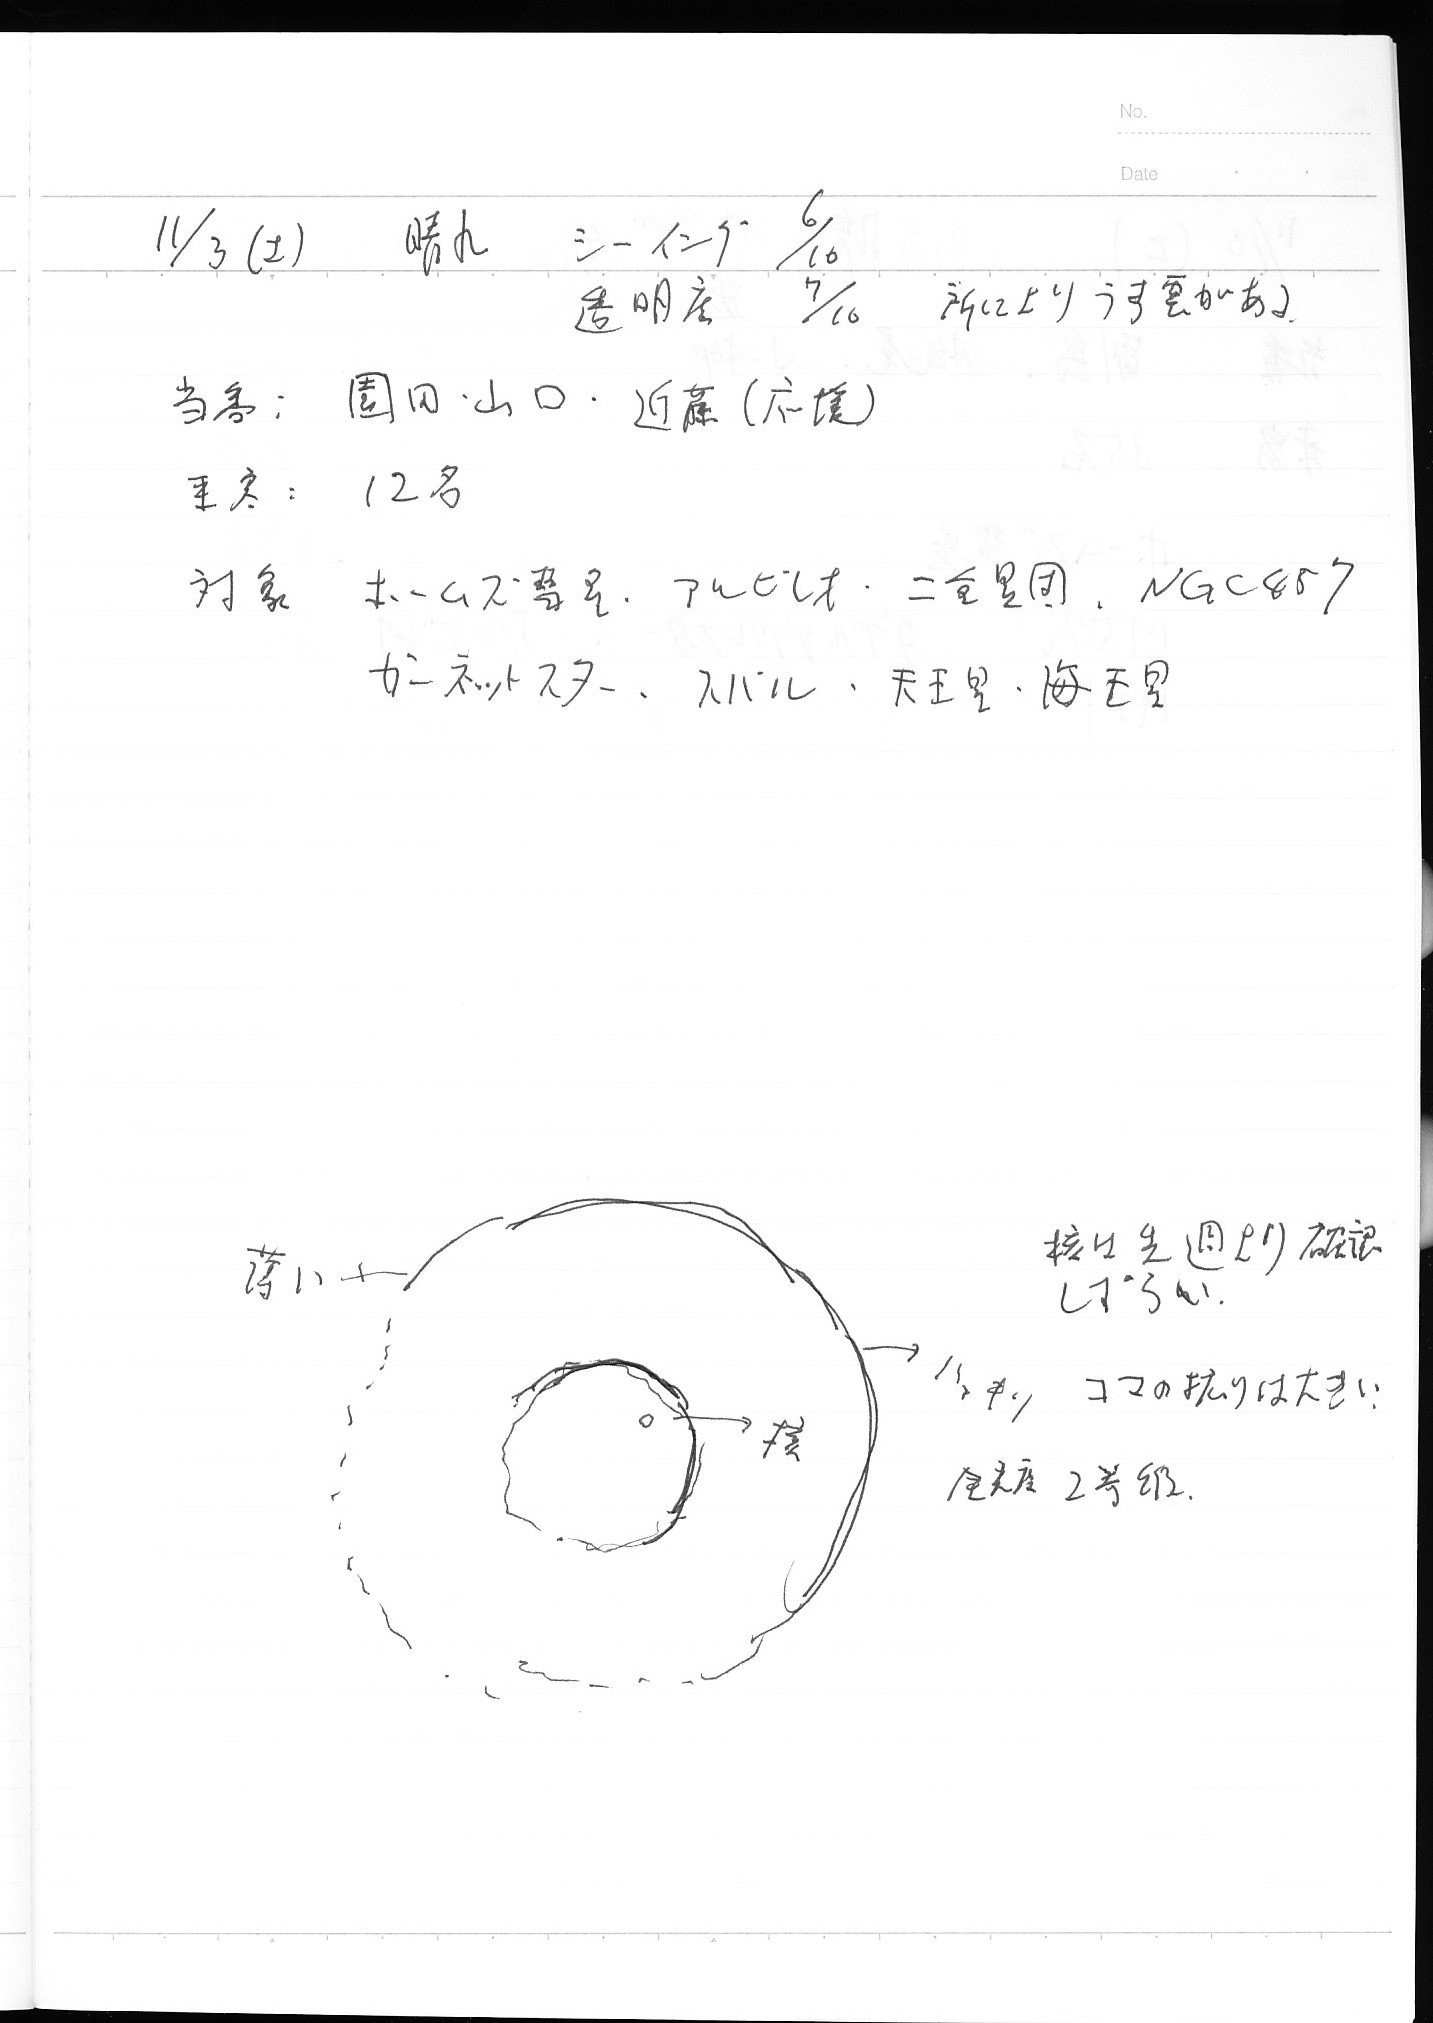 No.
Date
11/3(土) 晴れ シーイング 6/10
透明度 7/10 所によりうす雲がある
当番: 園田・山口・近藤(応援)
来客: 12名
対象 ホームズ彗星、アルビレオ・二重星団、NGC457
ガーネットスター、スバル、天王星・海王星
薄い
核は先週より確認
しずらい.
ハッキリ コマの拡りは大きい
核
全光度 2等級.